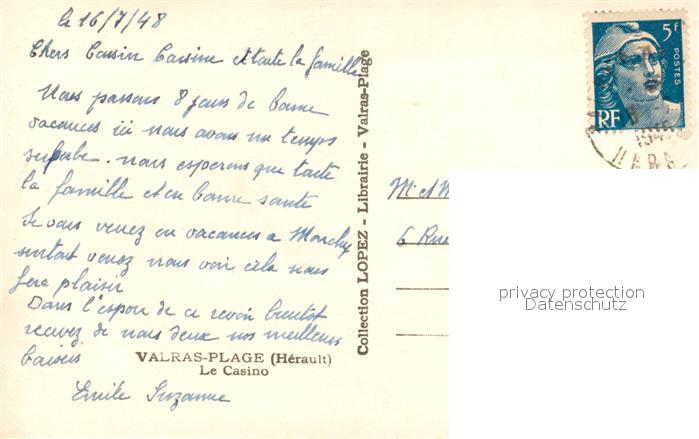 le 16/7/48
Chers Cousin Cousine et toute la famille
Nous passons 8 jours de bonne
vacances ici nous avons un temps
superbe. nous esperons que toute
la famille et en bonne sante
Si vous venez en vacances a
surtout venez nous voir cela nous
fera plaisir
Dans l'espoir de ce revoir bientot
recevez de nous deux nos meilleurs
baisers
Emile Suzanne
VALRAS-PLAGE (Hérault)
Le Casino
Collection LOPEZ - Librairie - Valras-Plage
5F
POSTES
RF
M et M
6 Rue
privacy protection
Datenschutz